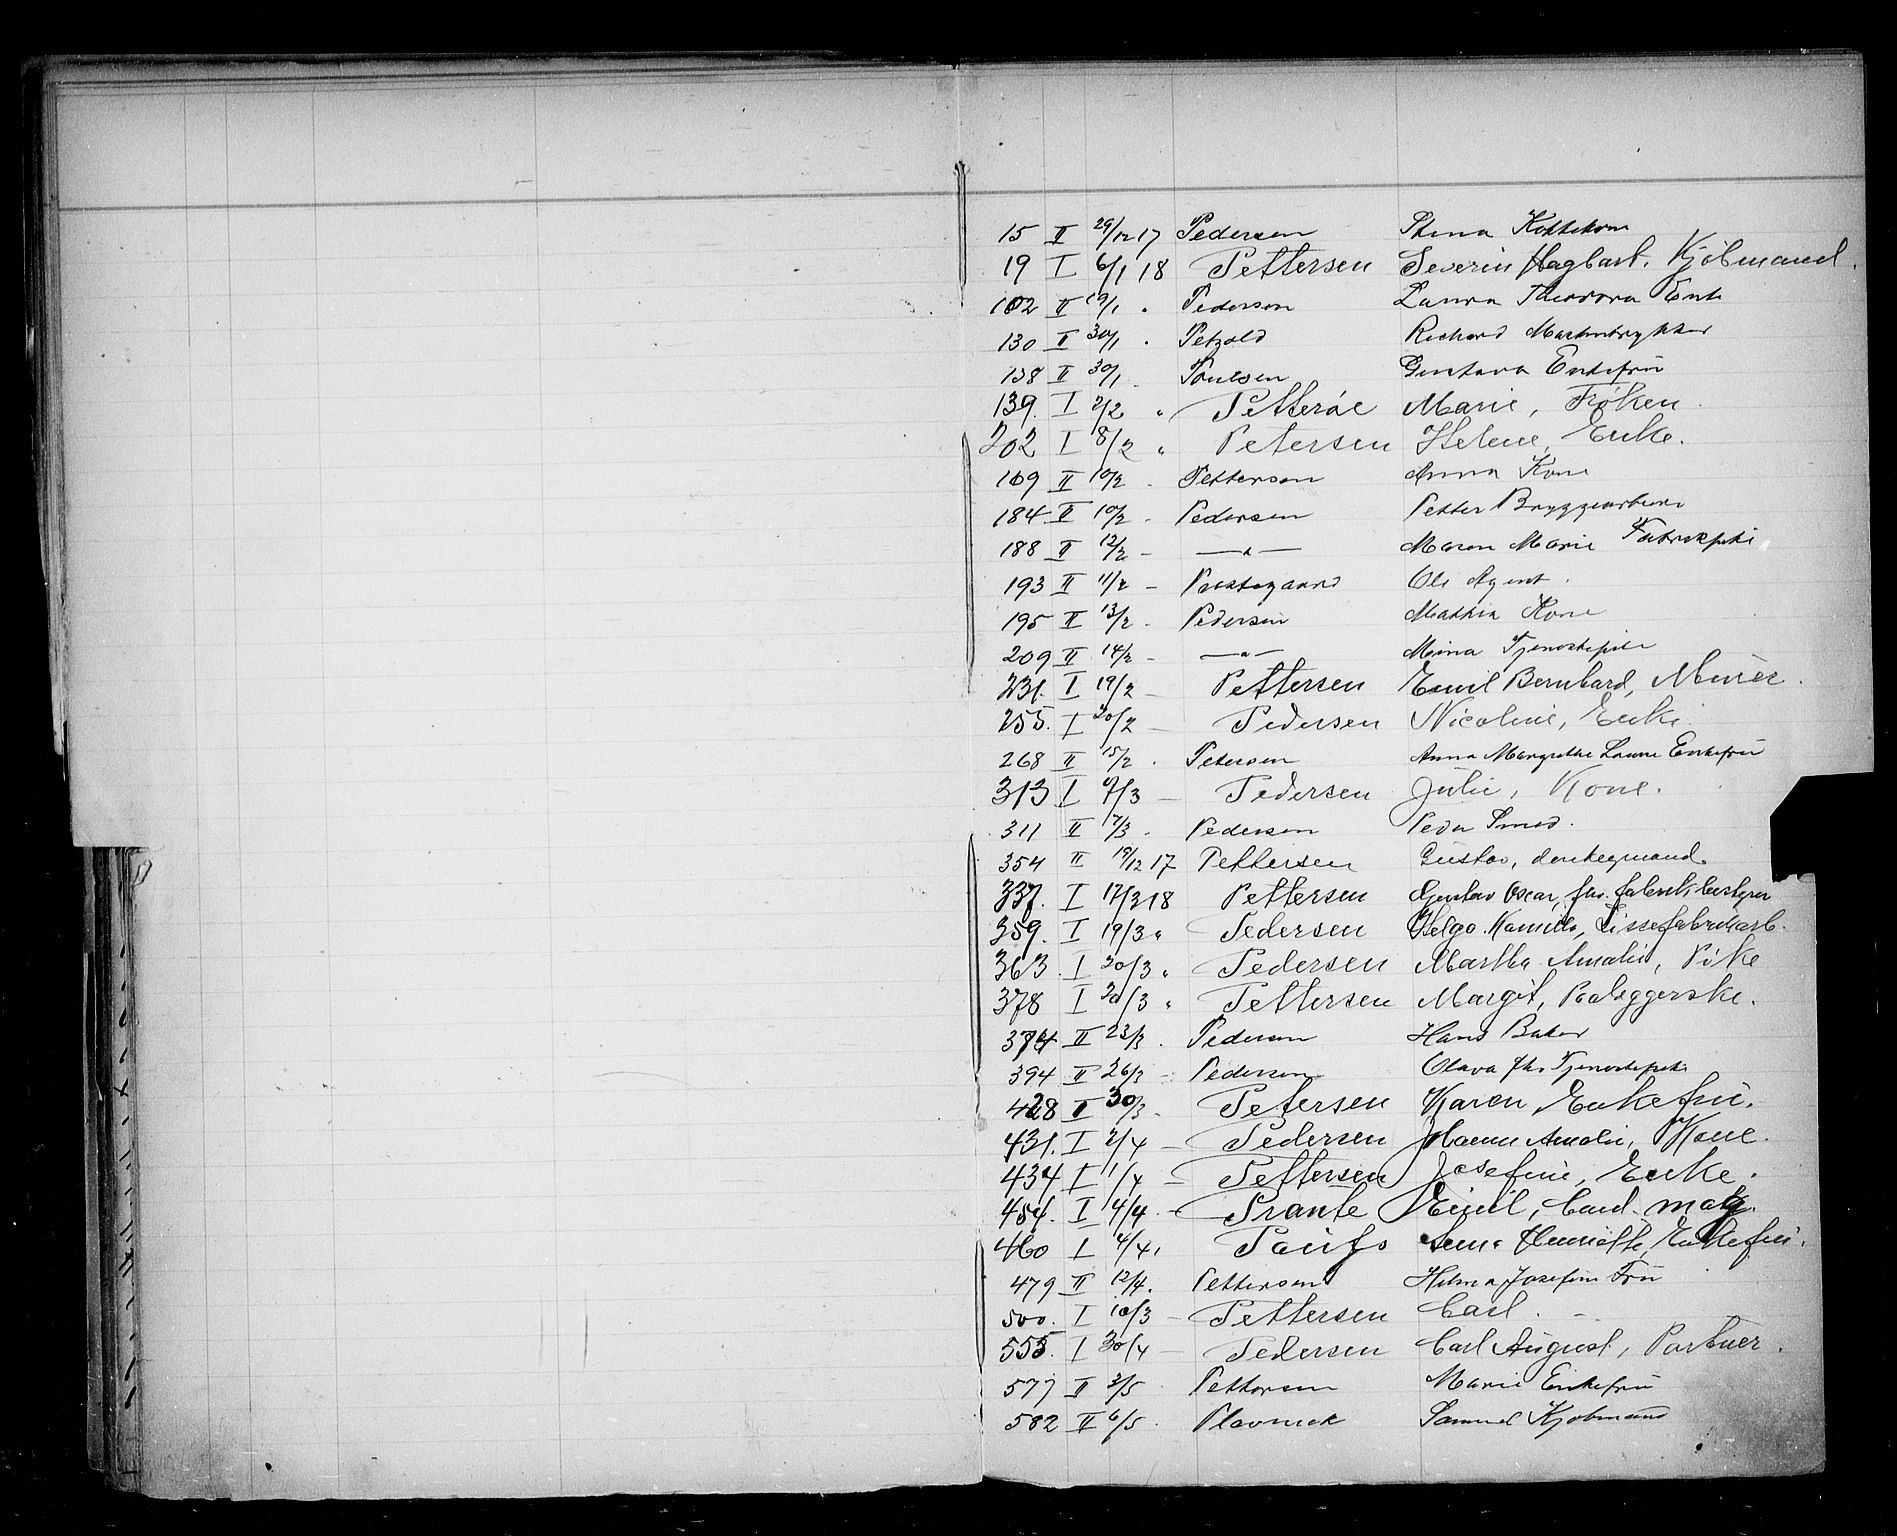 15 II 29/12 17 Pedersen Stina Kokkekone
19 I 6/1 18 Pettersen Severin Hagbart, Kjøbmand.
102 II 19/1 " Pedersen Laura Theodora Enke
130 II 30/1 " Petzold Richard Maskintrykker
138 II 30/1 Poulsen Gustava Enkefru
139. I 2/2 " Petterøe Marie, Frøken.
202 I 8/2 " Petersen Helene, Enke.
169 II 10/2 - Pettersen Anna Kone
184 II 10/2 - Pedersen Petter Bryggearbeider
188 II 12/2 - —"— Maren Marie Fabrikpike
193 II 11/2 - Præstegaard Ole Agent.
195 II 13/2 - Pedersen Mathea Kone
209 II 14/2 - —"— Mina Tjenestepike
231. I 19/2 - Pettersen Emil Bernhard, Murer.
255. I 20/2 - Pedersen Nicoline, Enke
268 II 15/2 . Petersen Anna Margrethe Enkefru
313 I 9/3 - Pedersen Julie, Kone.
311 II 7/3 - Pedersen Peder Smed.
354 II 19/12 17 Pettersen Gustav,
337. I 12/3 18 Pettersen Gustav Oscar, fhv. fabrikbestyrer
359. I 19/3 " Pedersen Helga Kamilla,
363. I 20/3 " Pedersen Martha Amalie, Pike
378 I 20/3 " Pettersen Margit, Paaleggerske.
374 II 23/3 . Pedersen Hans Baker
394 II 26/3 - Pedersen Olava fhv Tjenestepike
428 I 30/3 - Petersen Karen Enkefru.
431. I 2/4 - Pedersen Hanna Amalie, Kone.
434 I 1/4 - Pettersen Josefine, Enke.
454. I 4/4 - Prante Emil, Cand. mag.
460 I 4/4, Henriette, Enkefru.
479 II 12/4. Pettersen Hilma Josefine Fru
500. I 10/3 - Pettersen Carl.
555. I 30/4 - Pedersen Carl August, Portner.
577 II 3/5 Pettersen Marie Enkefru
582 II 6/5 . Plavnick Samuel Kjøbmand